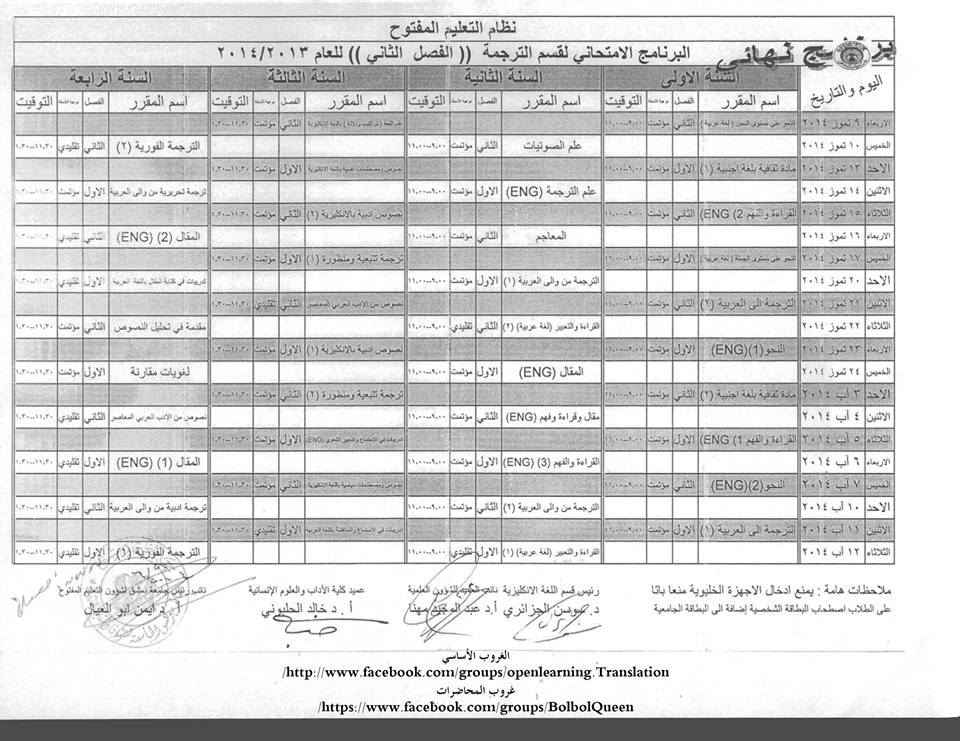 نظام التعليم المفتوح
البرنامج الامتحاني لقسم الترجمة (( الفصل الثاني )) للعام ٢٠١٤/٢٠١٣
برنامج نهائي
اليوم والتاريخ السنة الاولى السنة الثانية السنة الثالثة السنة الرابعة
اسم المقرر الفصل التوقيت اسم المقرر الفصل التوقيت اسم المقرر الفصل التوقيت اسم المقرر الفصل التوقيت
الاربعاء ٩ تموز ٢٠١٤ النحو على مستوى النص (لغة عربية) الثاني مؤتمت ٩,٠٠--١١,٠٠ الثاني مؤتمت ١١,٣٠--١,٣٠
الخميس ١٠ تموز ٢٠١٤ علم الصوتيات الثاني مؤتمت ٩,٠٠--١١,٠٠ الترجمة الفورية (٢) الثاني تقليدي ١١,٣٠--١,٣٠
الاحد ١٣ تموز ٢٠١٤ مادة ثقافية بلغة اجنبية (١) الاول مؤتمت ٩,٠٠--١١,٠٠ الاول مؤتمت ١١,٣٠--١,٣٠
الاثنين ١٤ تموز ٢٠١٤ علم الترجمة (ENG) الاول مؤتمت ٩,٠٠--١١,٠٠ ترجمة تحريرية من والى العربية الاول مؤتمت ١١,٣٠--١,٣٠
الثلاثاء ١٥ تموز ٢٠١٤ القراءة والفهم 2 (ENG) الثاني مؤتمت ٩,٠٠--١١,٠٠ نصوص ادبية بالانكليزية (٢) الثاني مؤتمت ١١,٣٠--١,٣٠
الاربعاء ١٦ تموز ٢٠١٤ المعاجم الثاني مؤتمت ٩,٠٠--١١,٠٠ المقال (2) (ENG) الثاني تقليدي ١١,٣٠--١,٣٠
الخميس ١٧ تموز ٢٠١٤ النحو على مستوى الجملة (لغة عربية) الاول مؤتمت ٩,٠٠--١١,٠٠ ترجمة تتبعية ومنظورة (١) الاول مؤتمت ١١,٣٠--١,٣٠
الاحد ٢٠ تموز ٢٠١٤ الترجمة من والى العربية (١) الاول مؤتمت ٩,٠٠--١١,٠٠ تدريبات في كتابة المقال باللغة العربية الاول تقليدي ١١,٣٠--١,٣٠
الاثنين ٢١ تموز ٢٠١٤ الترجمة الى العربية (٢) الثاني مؤتمت ٩,٠٠--١١,٠٠ نصوص من الادب العربي المعاصر الثاني تقليدي ١١,٣٠--١,٣٠
الثلاثاء ٢٢ تموز ٢٠١٤ القراءة والتعبير (لغة عربية) (٢) الثاني تقليدي ٩,٠٠--١١,٠٠ مقدمة في تحليل النصوص الثاني مؤتمت ١١,٣٠--١,٣٠
الاربعاء ٢٣ تموز ٢٠١٤ النحو(1)(ENG) الاول مؤتمت ٩,٠٠--١١,٠٠ نصوص ادبية بالانكليزية (١) الاول مؤتمت ١١,٣٠--١,٣٠
الخميس ٢٤ تموز ٢٠١٤ المقال (ENG) الاول مؤتمت ٩,٠٠--١١,٠٠ لغويات مقارنة الاول مؤتمت ١١,٣٠--١,٣٠
الاحد ٣ آب ٢٠١٤ مادة ثقافية بلغة اجنبية (٢) الثاني مؤتمت ٩,٠٠--١١,٠٠ ترجمة تتبعية ومنظورة (٢) الثاني مؤتمت ١١,٣٠--١,٣٠
الاثنين ٤ آب ٢٠١٤ مقال وقراءة وفهم (ENG) الثاني مؤتمت ٩,٠٠--١١,٠٠ نصوص من الادب العربي المعاصر الثاني تقليدي ١١,٣٠--١,٣٠
الثلاثاء ٥ آب ٢٠١٤ القراءة والفهم 1 (ENG) الاول مؤتمت ٩,٠٠--١١,٠٠ تدريبات في الاستماع والتعبير الشفوي (ENG) الاول ١١,٣٠--١,٣٠
الاربعاء ٦ آب ٢٠١٤ القراءة والفهم (3) (ENG) الاول مؤتمت ٩,٠٠--١١,٠٠ المقال (1) (ENG) الاول تقليدي ١١,٣٠--١,٣٠
الخميس ٧ آب ٢٠١٤ النحو(2)(ENG) الثاني مؤتمت ٩,٠٠--١١,٠٠ الثاني مؤتمت ١١,٣٠--١,٣٠
الاحد ١٠ آب ٢٠١٤ الترجمة من والى العربية (٢) الثاني مؤتمت ٩,٠٠--١١,٠٠ ترجمة ادبية من والى العربية الثاني تقليدي ١١,٣٠--١,٣٠
الاثنين ١١ آب ٢٠١٤ الترجمة الى العربية (١) الاول مؤتمت ٩,٠٠--١١,٠٠ الاول تقليدي ١١,٣٠--١,٣٠
الثلاثاء ١٢ آب ٢٠١٤ القراءة والتعبير (لغة عربية) (١) الاول تقليدي ٩,٠٠--١١,٠٠ الترجمة الفورية (١) الاول تقليدي ١١,٣٠--١,٣٠
ملاحظات هامة : يمنع ادخال الاجهزة الخليوية منعا باتا
على الطلاب اصطحاب البطاقة الشخصية إضافة الى البطاقة الجامعية
رئيس قسم اللغة الانكليزية
د. سوسن الجزائري
نائب الكلية لشؤون العلمية
أ.د عبد المجيد مهنا
عميد كلية الآداب والعلوم الإنسانية
أ . د خالد الحلبوني
نائب رئيس جامعة دمشق لشؤون التعليم المفتوح
أ . د. ايمن ابو العيال
الغروب الأساسي
http://www.facebook.com/groups/openlearning.Translation/
غروب المحاضرات
https://www.facebook.com/groups/BolbolQueen/